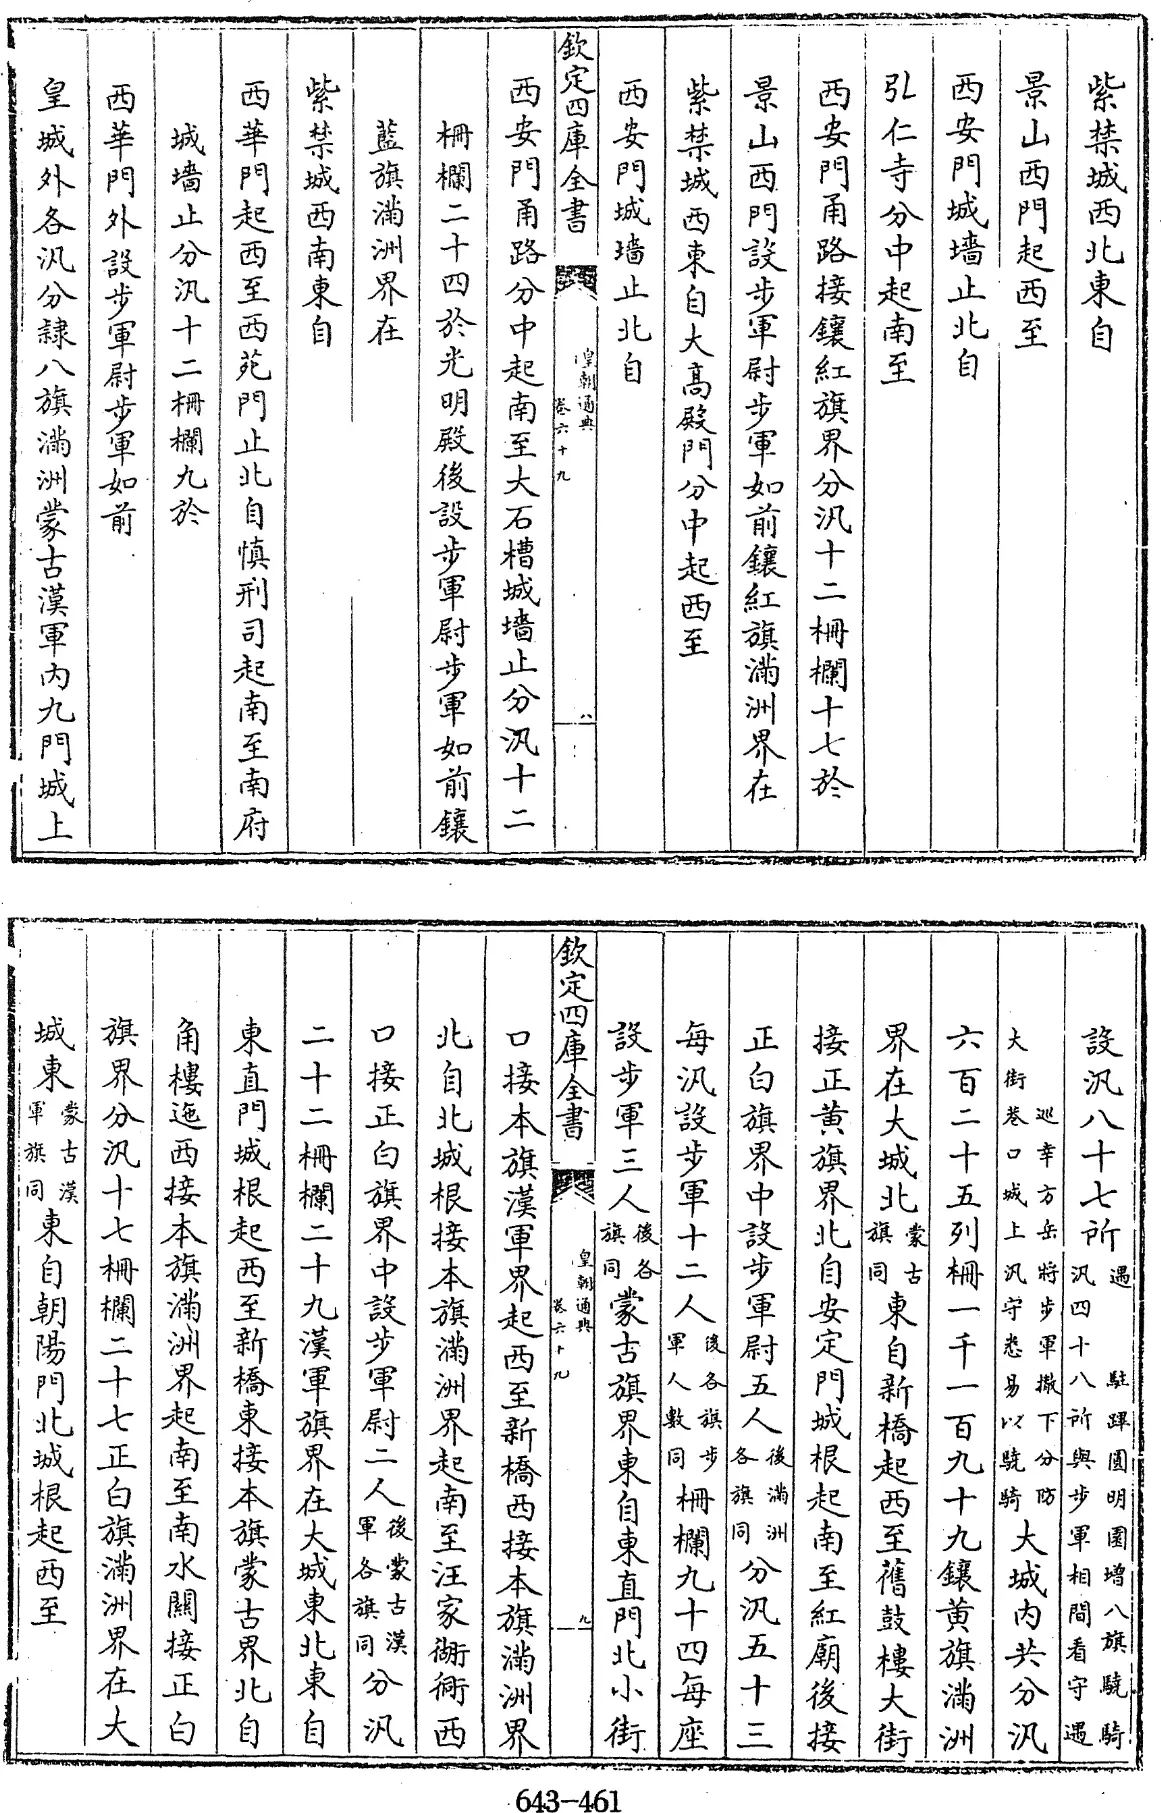 紫禁城西北東自
景山西門起西至
西安門城墻止北自
引仁寺分中起南至
西安門甬路接鑲紅旗界分汛十二柵欄十七於
景山西門設步軍尉步軍如前鑲紅旗滿洲界在
紫禁城西東自大高殿門分中起西至
西安門城墻止北自
欽定四庫全書
皇朝通典
卷六十九
八
西安門甬路分中起南至大石槽城墻止分汛十二
柵欄二十四於光明殿後設步軍尉步軍如前鑲
藍旗滿洲界在
紫禁城西南東自
西華門起西至西苑門止北自慎刑司起南至南府
城墻止分汛十二柵欄九於
西華門外設步軍尉步軍如前
皇城外各汛分隷八旗滿洲蒙古漢軍内九門城上
設汛八十七所遇 駐蹕圓明園增八旗驍騎汛四十八所與步軍相間看守遇
巡幸方岳將步軍撤下分防大街巷口城上汛守悉易以驍騎大城内共分汛
六百二十五列柵一千一百九十九鑲黄旗滿洲
界在大城北蒙古旗同東自新橋起西至舊鼓樓大街
接正黄旗界北自安定門城根起南至紅廟後接
正白旗界中設步軍尉五人後滿洲各旗同分汛五十三
每汛設步軍十二人後各旗步軍人數同柵欄九十四每座
設步軍三人後各旗同蒙古旗界東自東直門北小街
欽定四庫全書
皇朝通典
卷六十九
九
口接本旗漢軍界起西至新橋西接本旗滿洲界
北自北城根接本旗滿洲界起南至汪家衚衕西
口接正白旗界中設步軍尉二人後蒙古漢軍各旗同分汛
二十二柵欄二十九漢軍旗界在大城東北東自
東直門城根起西至新橋東接本旗蒙古界北自
角樓迤西接本旗滿洲界起南至南水關接正白
旗界分汛十七柵欄二十七正白旗滿洲界在大
城東蒙古漢軍旗同東自朝陽門北城根起西至
643-461